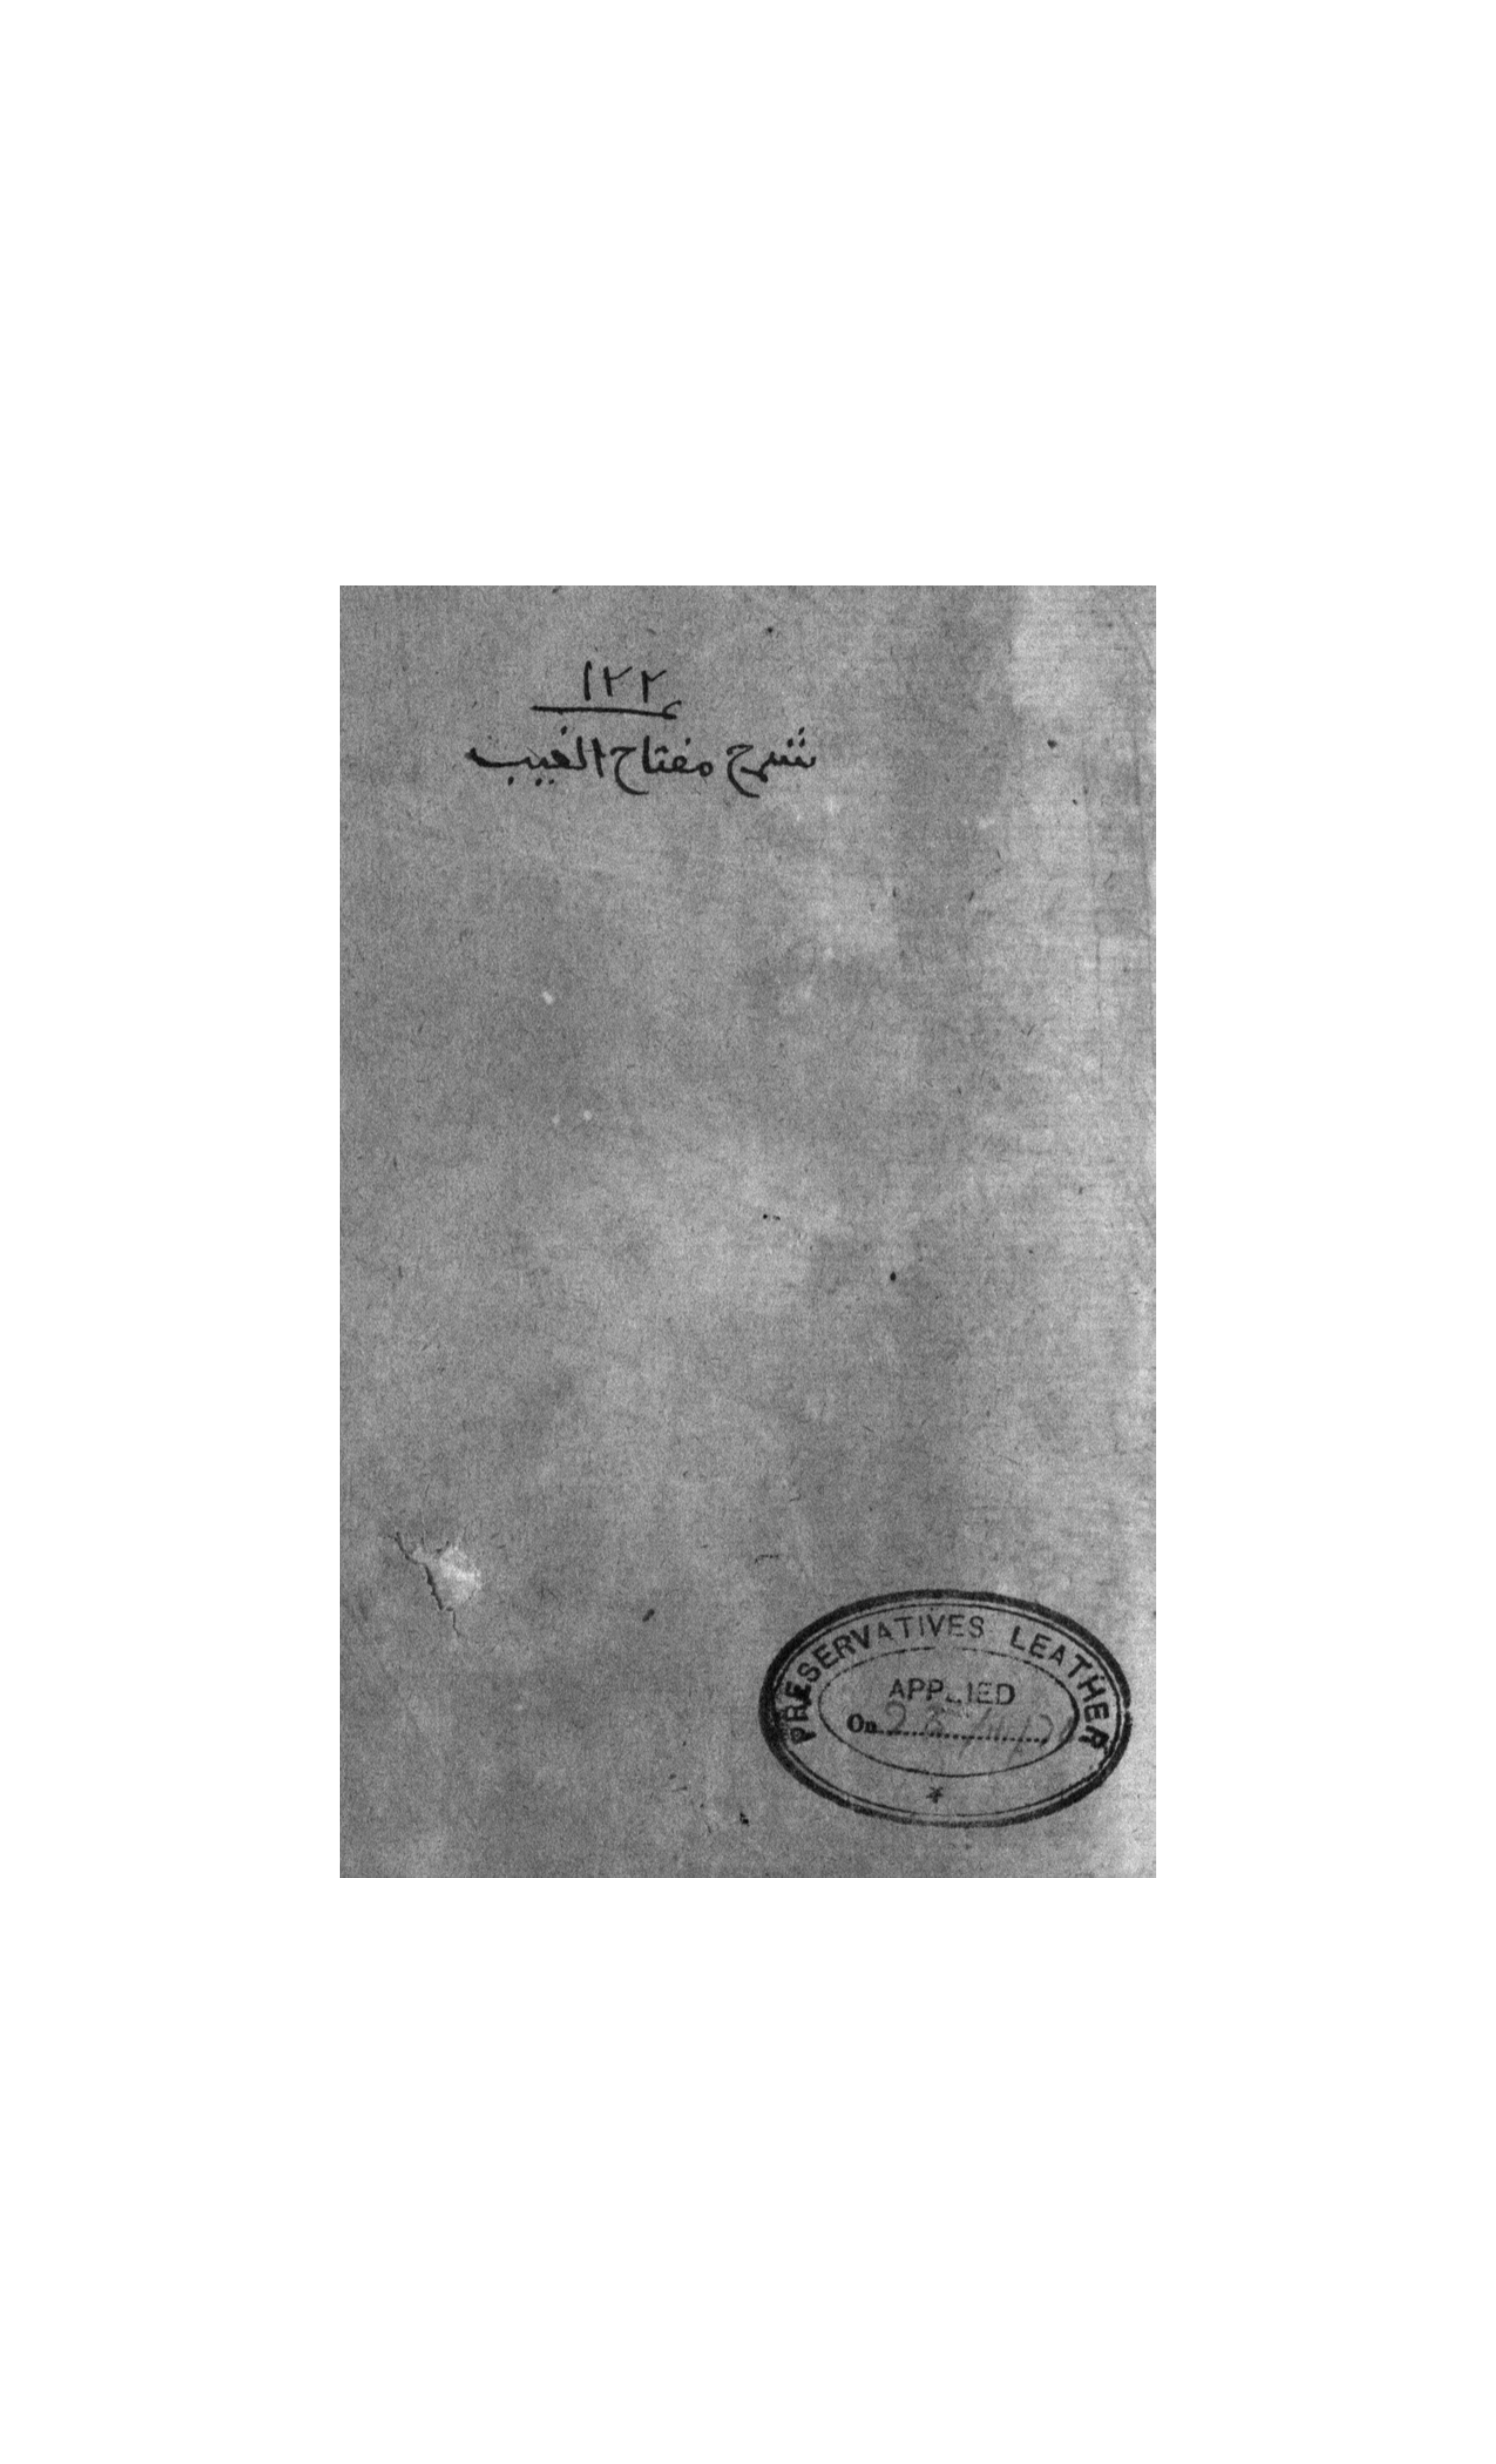 ١٢٢
شرح مفتاح الغيب
PRESERVATIVES LEATHER
APPLIED
On